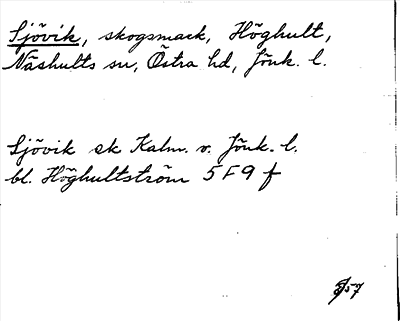 Sjövik, skogsmark, Höghult,
Näshults sn, Östra hd, Jönk. l.
Sjövik ek Kalm. v. Jönk. l.
bl. Höghultström 5F9f
57